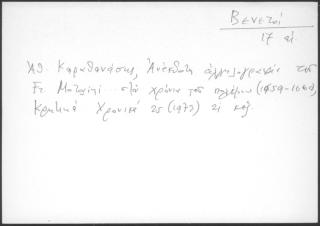 Βενετοί
17 αἰ.
Ἀθ. Καραθανάσης, Ἀνέκδοτη ἀλληλογραφία τοῦ
Fr. Morosini στὰ χρόνια τοῦ πολέμου (1659-1660),
Κρητικά Χρονικά 25 (1973) 21 κἑξ.